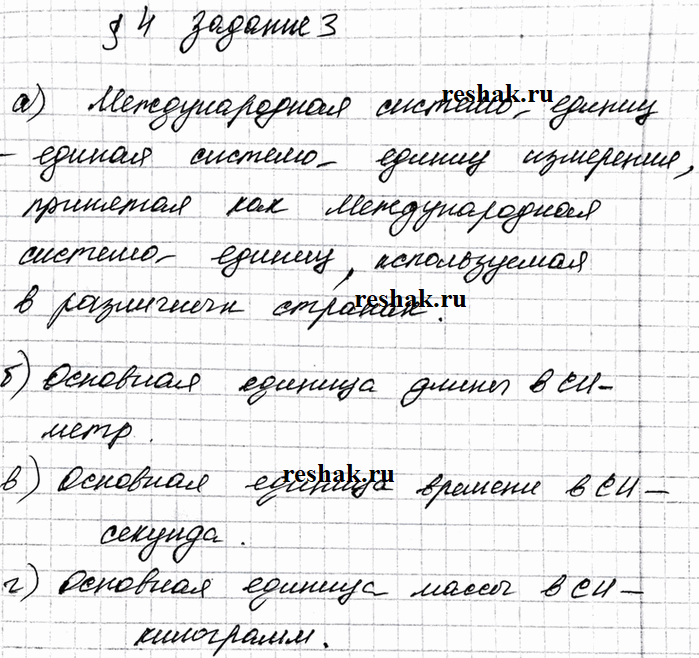 § 4 Задание 3
а) Международная система единиц
- единая система единиц измерения,
принятая как Международная
система единиц, используемая
в различных странах.
б) Основная единица длины в СИ -
метр.
в) Основная единица времени в СИ -
секунда.
г) Основная единица массы в СИ -
килограмм.
reshak.ru
reshak.ru
reshak.ru